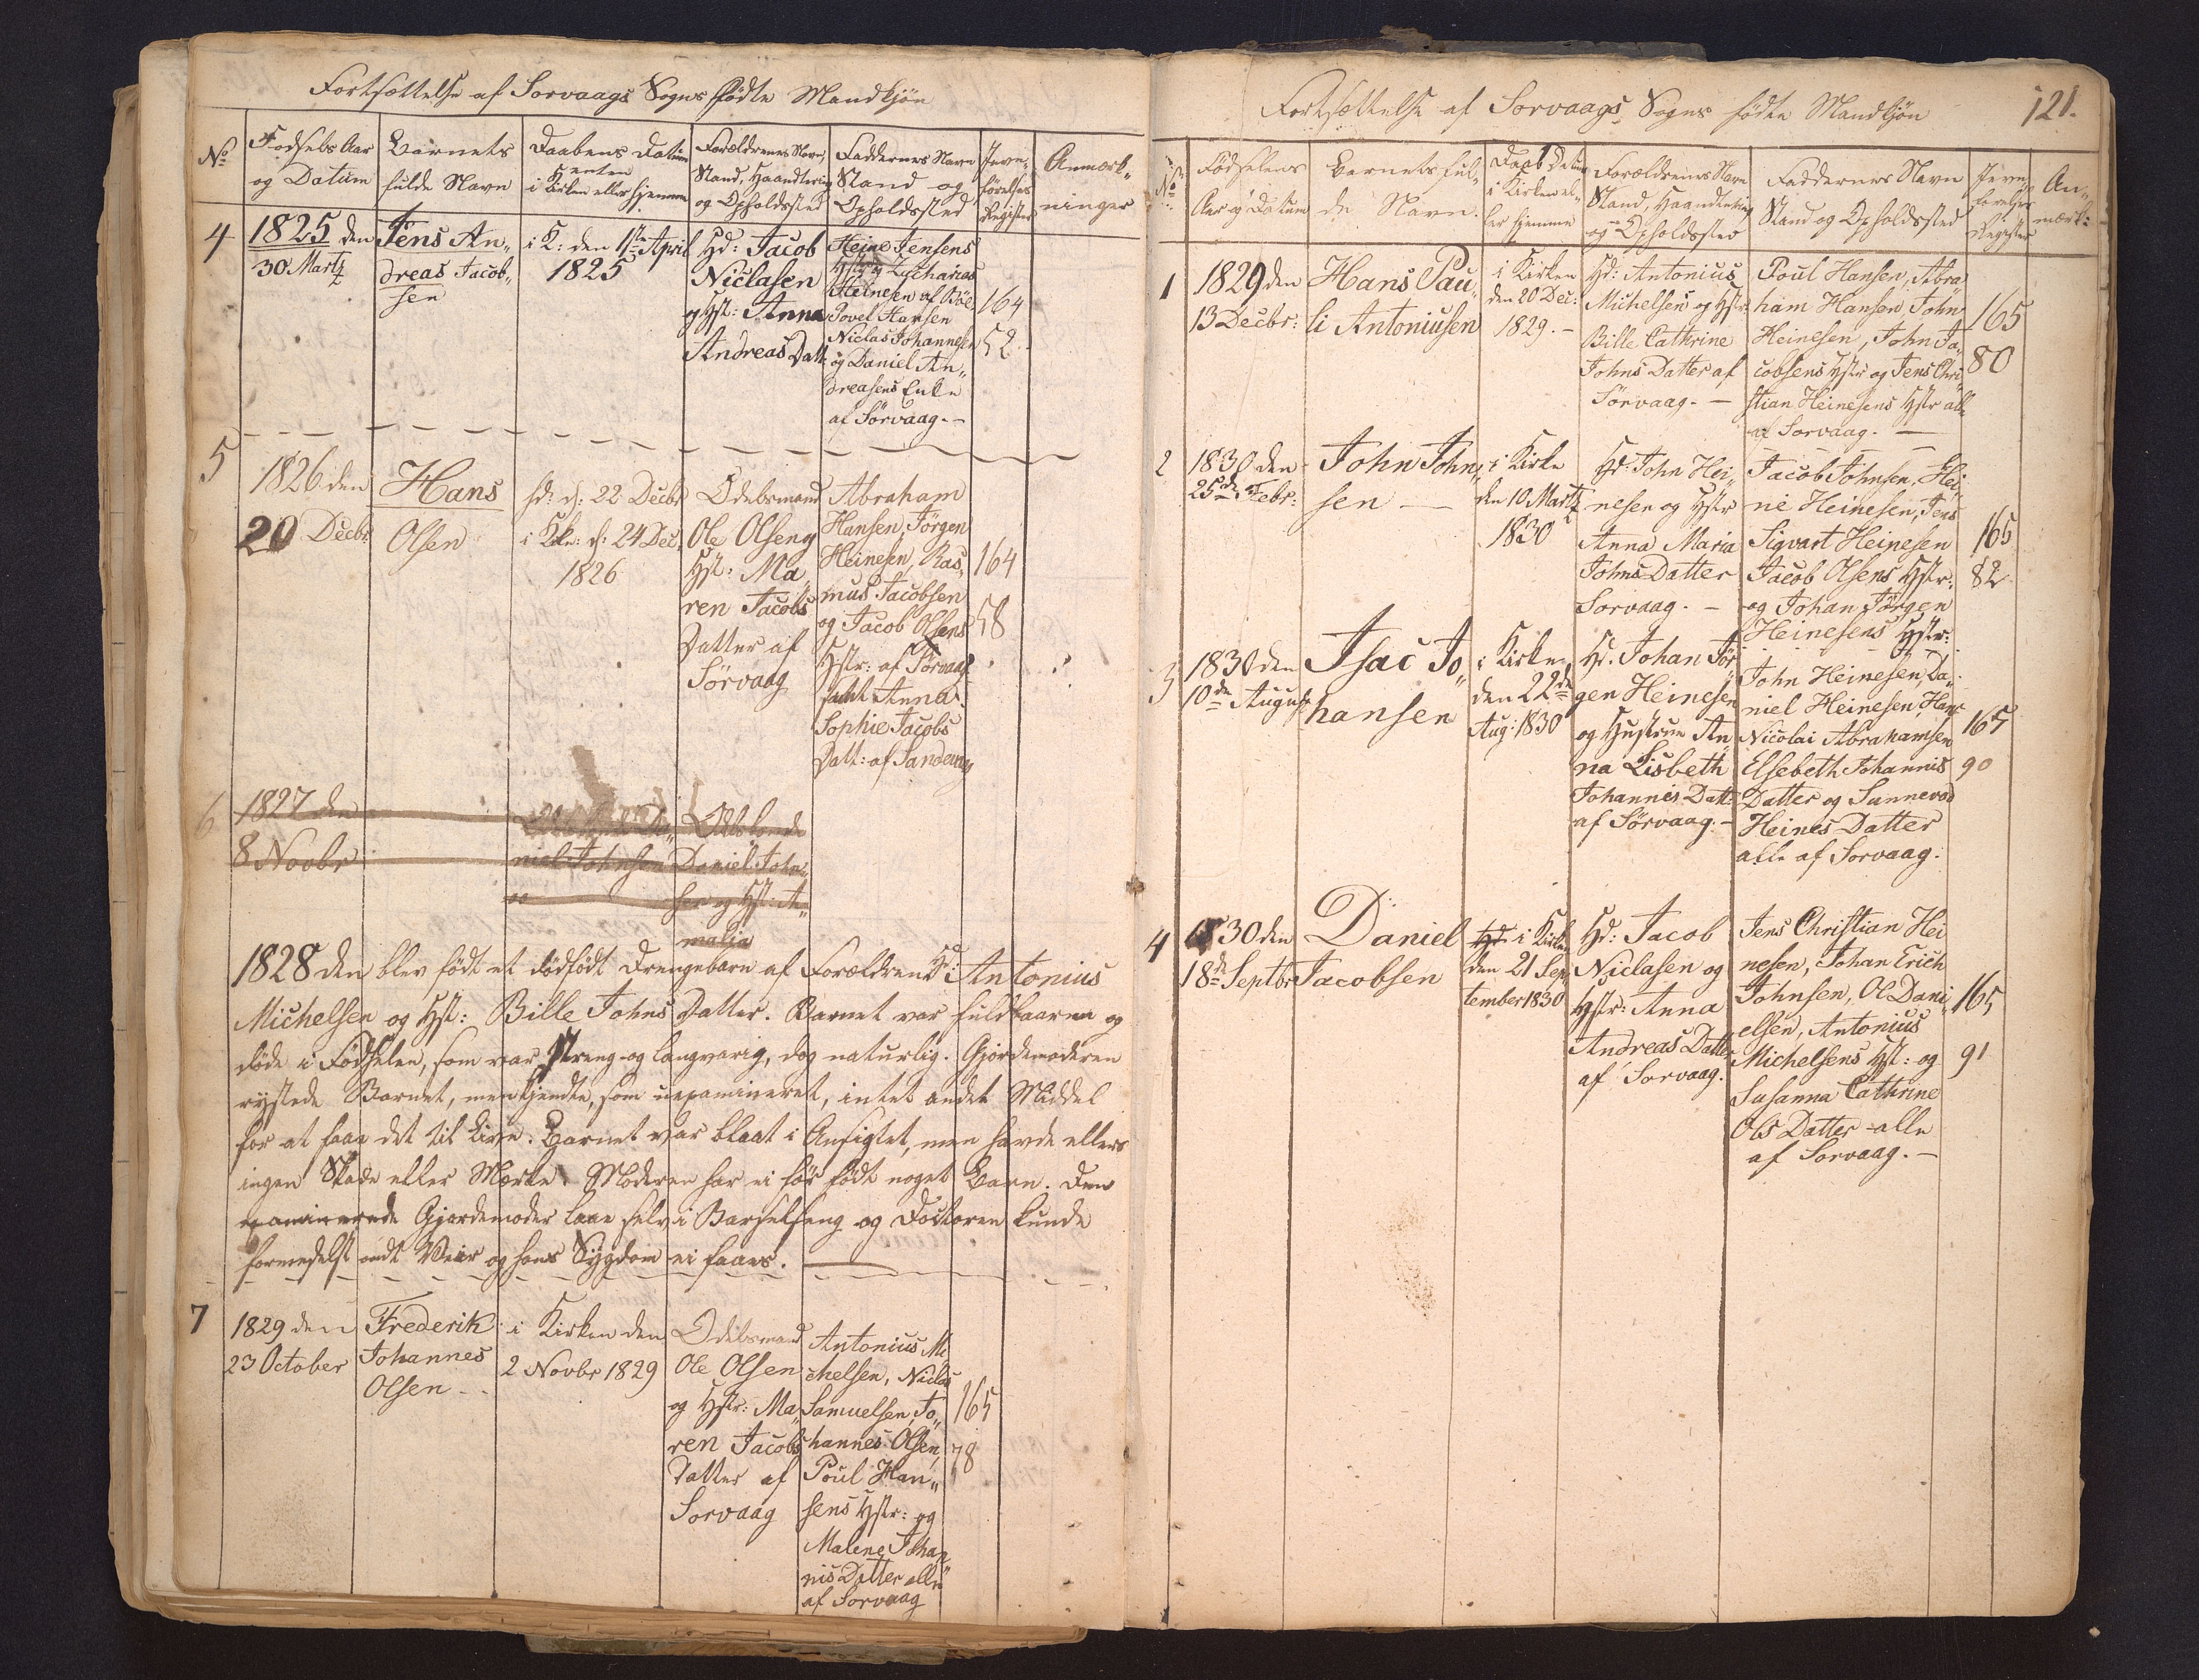 Fortsættelse af Sorvaags Sogns fødte Mandkjøn
No
Fødsels Aar
og Datum
Barnets
fulde Navn
Daabens Datum
Enten
i Kirken eller hjemme
Forældrenes Navn,
Stand, Haandtering
og Opholdssted
Faddernes Navn
Stand og
Opholdssted
Jevn-
førelses
Register
Anmærk-
ninger
4
1825 den
30 Martz
Jens An„
dreas Jacob„
sen
i K: den 1ste April
1825
Hd: Jacob
Niclasen
og Hst: Anna
Andreas Datt
Heine Jensens
Hstr og Zacharias
Heinesen af Bøe
Povel Hansen
Niclas Johannesen
og Daniel An„
dreasens Enke
af Sørvaag. –
164
52
5
1826 den
20 Decbr
Hans
Olsen
hd: d: 22 Decbr
i Kke: d: 24 Dec:
1826
Odelsmand
Ole Olsen og
Hst: Ma„
ren Jacobs
Datter af
Sørvaag
Abraham
Hansen, Jørgen
Heinesen, Ras„
mus Jacobsen
og Jacob Olsens
Hstr: af Sørvaag
samt Anna
Sophie Jacobs
Datt: af Sandevaag
164
58
6
1827 den
8 Novbr
niel Johnsen
Odelsbonde
Daniel John„
sen og Hst: A„
malia
1828 den blev født et dødfødt Drengebarn af Forældrene Hd: Antonius
Michelsen og Hst: Bille Johns Datter. Barnet var fuldbaaren og
døde i Fødselen, som var streng og langvarig, dog naturlig. Gjordemoderen
rystede Barnet, men kjendte, som uexamineret, intet andet Middel
for at faae det til Live. Barnet var blaat i Ansigtet, men havde ellers
ingen Skade eller Mærke. Moderen har ei før født noget Barn. Den
examinerede Gjordemoder laae selv i Barselseng og Doctoren kunde
formedelst ondt Veir og hans Sygdom ei faaes.
7
1829 den
23 October
Frederik
Johannes
Olsen –
i Kirken den
2 Novbr 1829
Odelsmand
Ole Olsen
og Hstr: Ma„
ren Jacobs
Datter af
Sorvaag
Antonius Mi
chelsen, Niclas
Samuelsen, Jo„
hannes Olsen,
Poul Han„
sens Hstr: og
Malene Johan
nis Datter alle
af Sorvaag
165
78
Fortsættelse af Sorvaags Sogns fødte Mandkjøn
121.
No
Fødselens
Aar og Datum
Barnets ful„
de Navn.
Daab Datum
i Kirken el„
ler hjemme
Forældrenes Navn
Stand, Haandtering
og Opholdssted
Faddernes Navn
Stand og Opholdssted
Jevn
førelses
Register
An„
mærk:
1
1829 den
13 Decbr:
Hans Pau„
li Antoniusen
i Kirken
den 20 Dec:
1829. –
Hd: Antonius
Michelsen og Hstr
Bille Cathrine
Johns Datter af
Sørvaag. –
Poul Hansen, Abra
ham Hansen, John
Heinesen, John Ja„
cobsens Hstr og Jens Chri
stian Heinesens Hstr alle
af Sorvaag. –
165
80
2
1830 den
25de Febr:
John John„
sen –
i Kirke
den 10 Martz
1830
Hd: John Hei„
nesen og Hstr
Anna Maria
Johns Datter
Sorvaag. –
Jacob Johnsen, Hei„
ne Heinesen, Jens
Sigvart Heinesen
Jacob Olsens Hstr:
og Johan Jørgen
Heinesens Hstr:
165
82
3
1830 den
10de August
Isac Jo„
hansen
i Kirke
den 22de
Aug: 1830
Hd. Johan Jør
gen Heinesen
og Hustrue An
na Lisbeth
Johannes Datt
af Sørvaag. –
John Heinesen, Da„
niel Heinesen, Hans
Nicolai Abrahamsen
Elsebeth Johannis
Datter og Sunneva
Heines Datter
alle af Sorvaag.
165
90
4
1830 den
18de Septbr
Daniel
Jacobsen
hd: i Kirken
den 21 Sep„
tember 1830
Hd: Jacob
Niclasen og
Hstr: Anna
Andreas Datter
af Sorvaag.
Jens Christian Hei
nesen, Johan Erich
Johnsen, Ol Dani„
elsen, Antonius
Michelsens Hst: og
Susanna Cathrine
Ols Datter alle
af Sorvaag. –
165
91